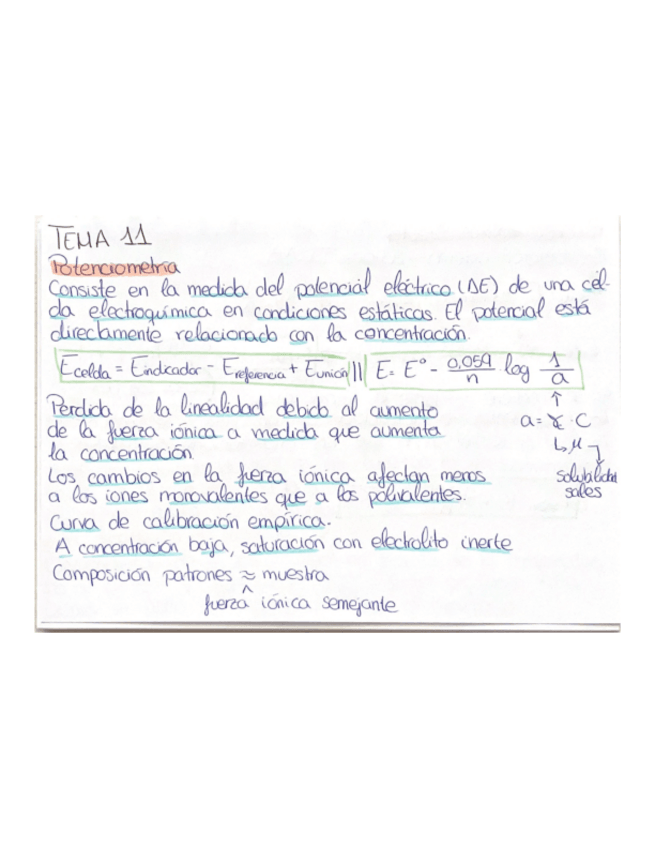 TEMA 11
Potenciometria
Consiste en la medida del potencial eléctrico (ΔE) de una cel-
da electroquímica en condiciones estáticas. El potencial está
directamente relacionado con la concentración.
Ecelda = Eindicador - Ereferencia + Eunión || E = E° - 0,059/n log 1/a
Perdida de la linealidad debido al aumento
de la fuerza iónica a medida que aumenta
la concentración
↑
a = γ · C
↳ μ → solubilidad sales
Los cambios en la fuerza iónica afectan menos
a los iones monovalentes que a los polivalentes.
Curva de calibración empírica.
A concentración baja, saturación con electrolito inerte
Composición patrones ≈ muestra
^
fuerza iónica semejante